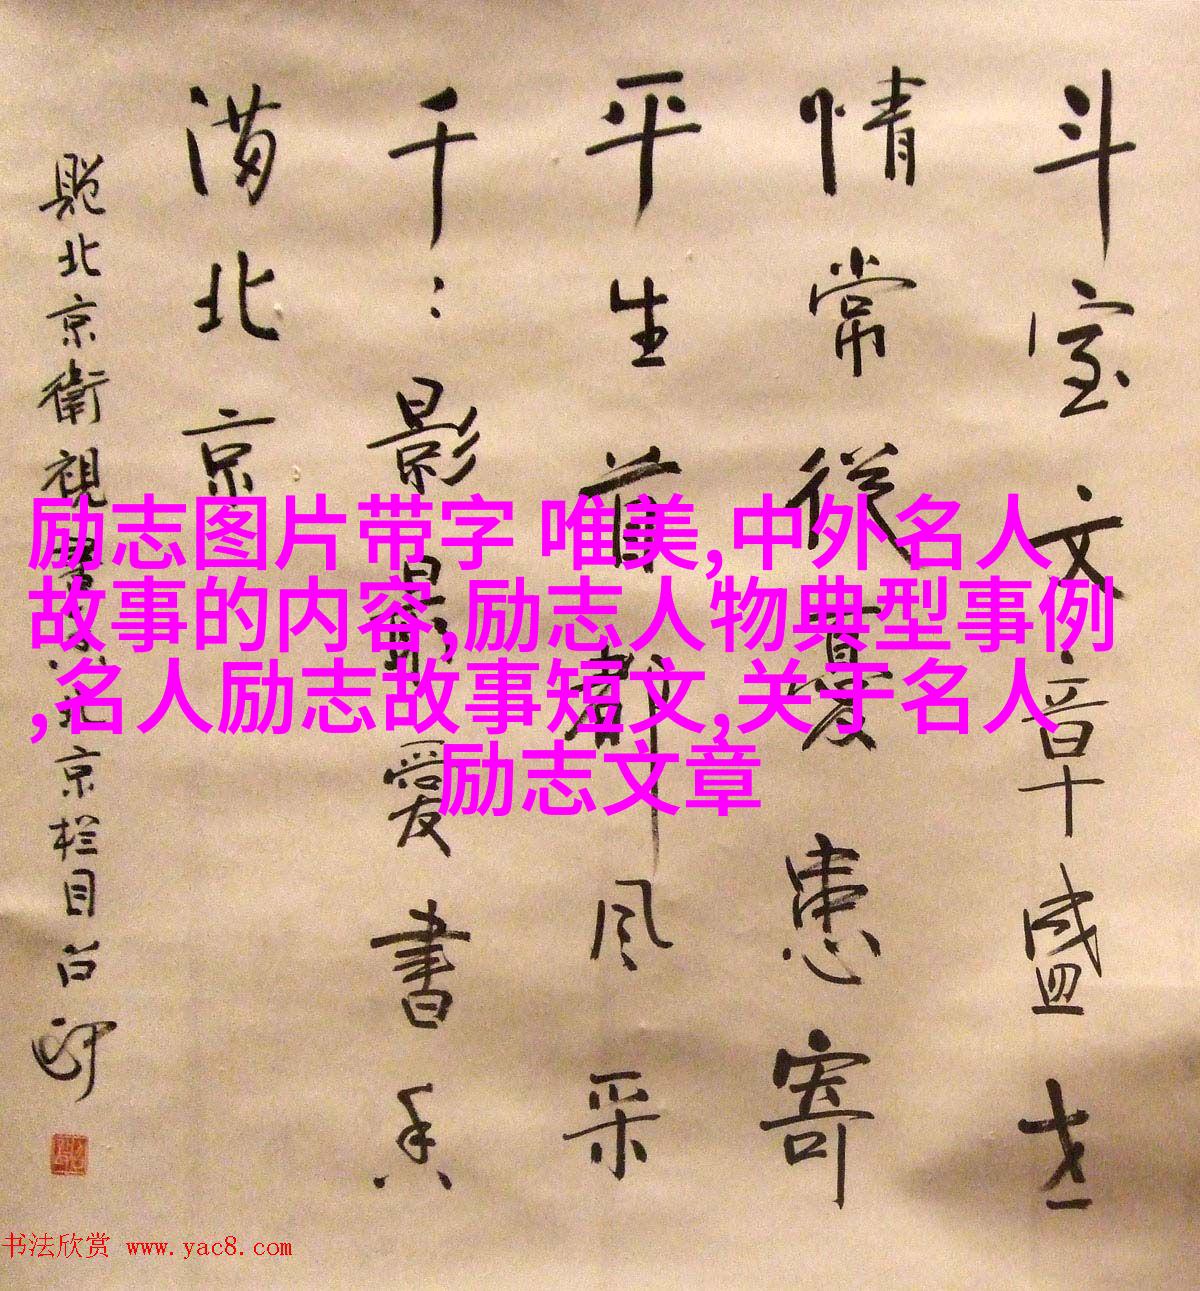 斗室文章盛世
情常從憂患寄
平生首都风采
千〻影最愛書香
满北京
題北京衛視書香北京栏目
励志图片带字 唯美,中外名人
故事的内容,励志人物典型事例
,名人励志故事短文,关于名人
励志文章
书法欣赏 www.yac8.com